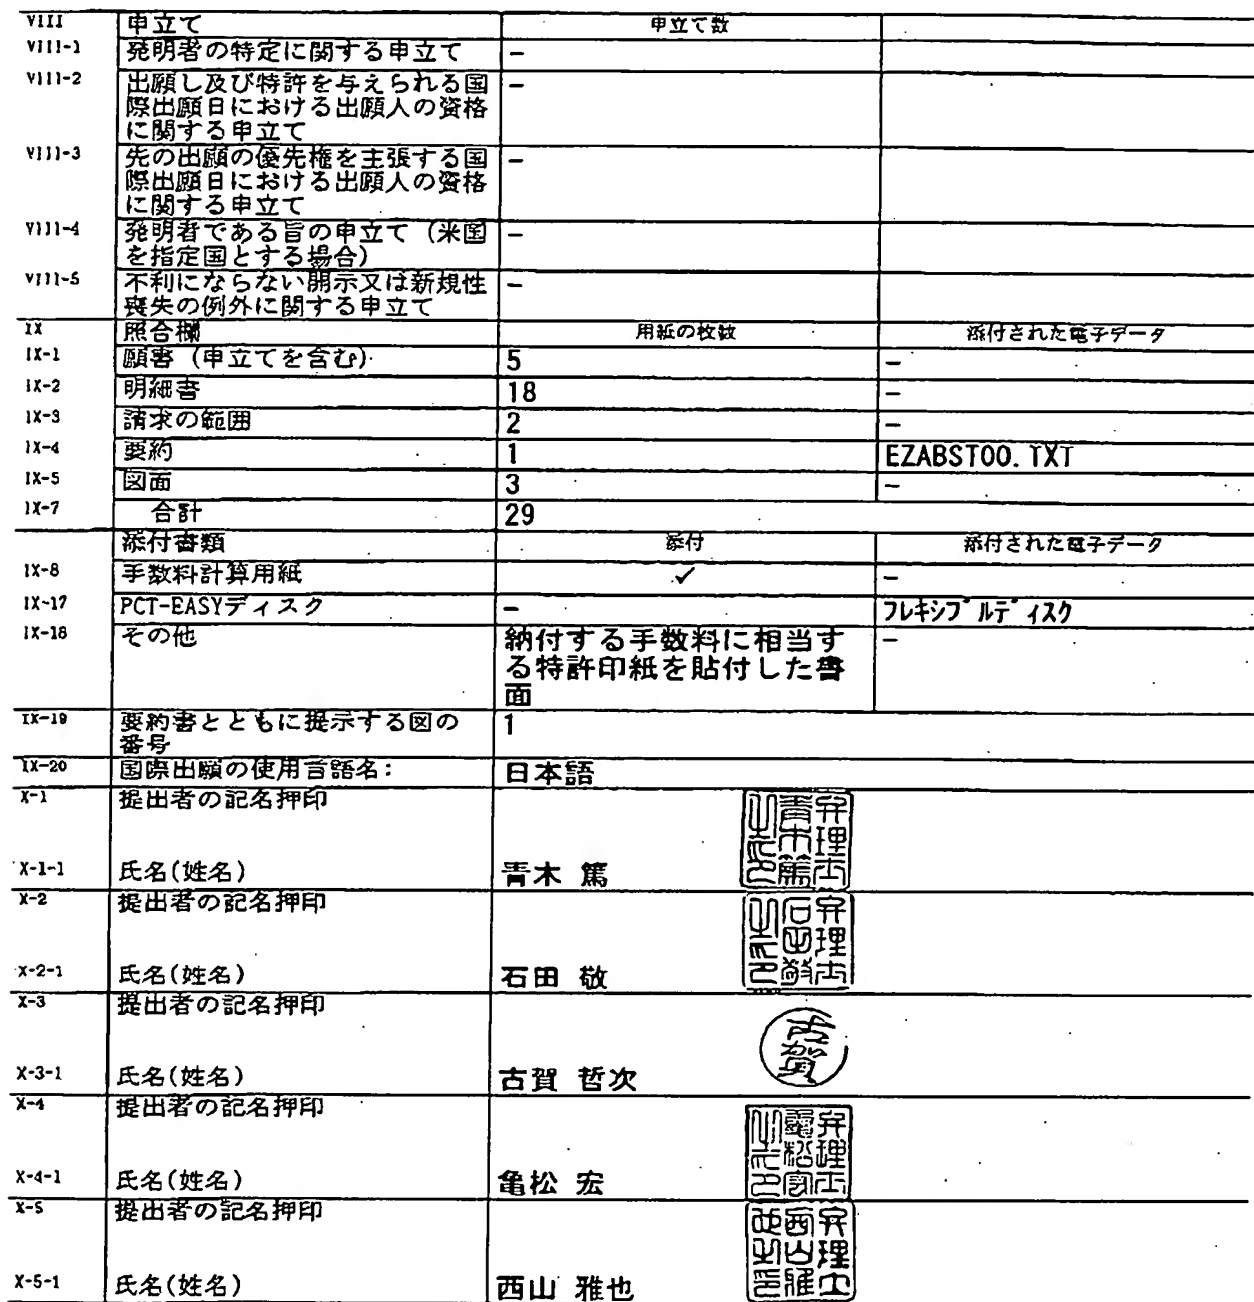 VIII 申立て 申立て数
VIII-1 発明者の特定に関する申立て –
VIII-2 出願し及び特許を与えられる国 –
際出願日における出願人の資格
に関する申立て
VIII-3 先の出願の優先権を主張する国 –
際出願日における出願人の資格
に関する申立て
VIII-4 発明者である旨の申立て（米国 –
を指定国とする場合）
VIII-5 不利にならない開示又は新規性 –
喪失の例外に関する申立て
IX 照合欄 用紙の枚数 添付された電子データ
IX-1 願書（申立てを含む） 5 –
IX-2 明細書 18 –
IX-3 請求の範囲 2 –
IX-4 要約 1 EZABST00.TXT
IX-5 図面 3 –
IX-7 合計 29
添付書類 添付 添付された電子データ
IX-8 手数料計算用紙 ✓ –
IX-17 PCT-EASYディスク – フレキシブルディスク
IX-18 その他 納付する手数料に相当す –
る特許印紙を貼付した書
面
IX-19 要約書とともに提示する図の 1
番号
IX-20 国際出願の使用言語名： 日本語
X-1 提出者の記名押印
弁理士青木篤之印
X-1-1 氏名(姓名) 青木 篤
X-2 提出者の記名押印
弁理士石田敬之印
X-2-1 氏名(姓名) 石田 敬
X-3 提出者の記名押印
古賀
X-3-1 氏名(姓名) 古賀 哲次
X-4 提出者の記名押印
弁理士亀松宏之印
X-4-1 氏名(姓名) 亀松 宏
X-5 提出者の記名押印
弁理士西山雅也之印
X-5-1 氏名(姓名) 西山 雅也